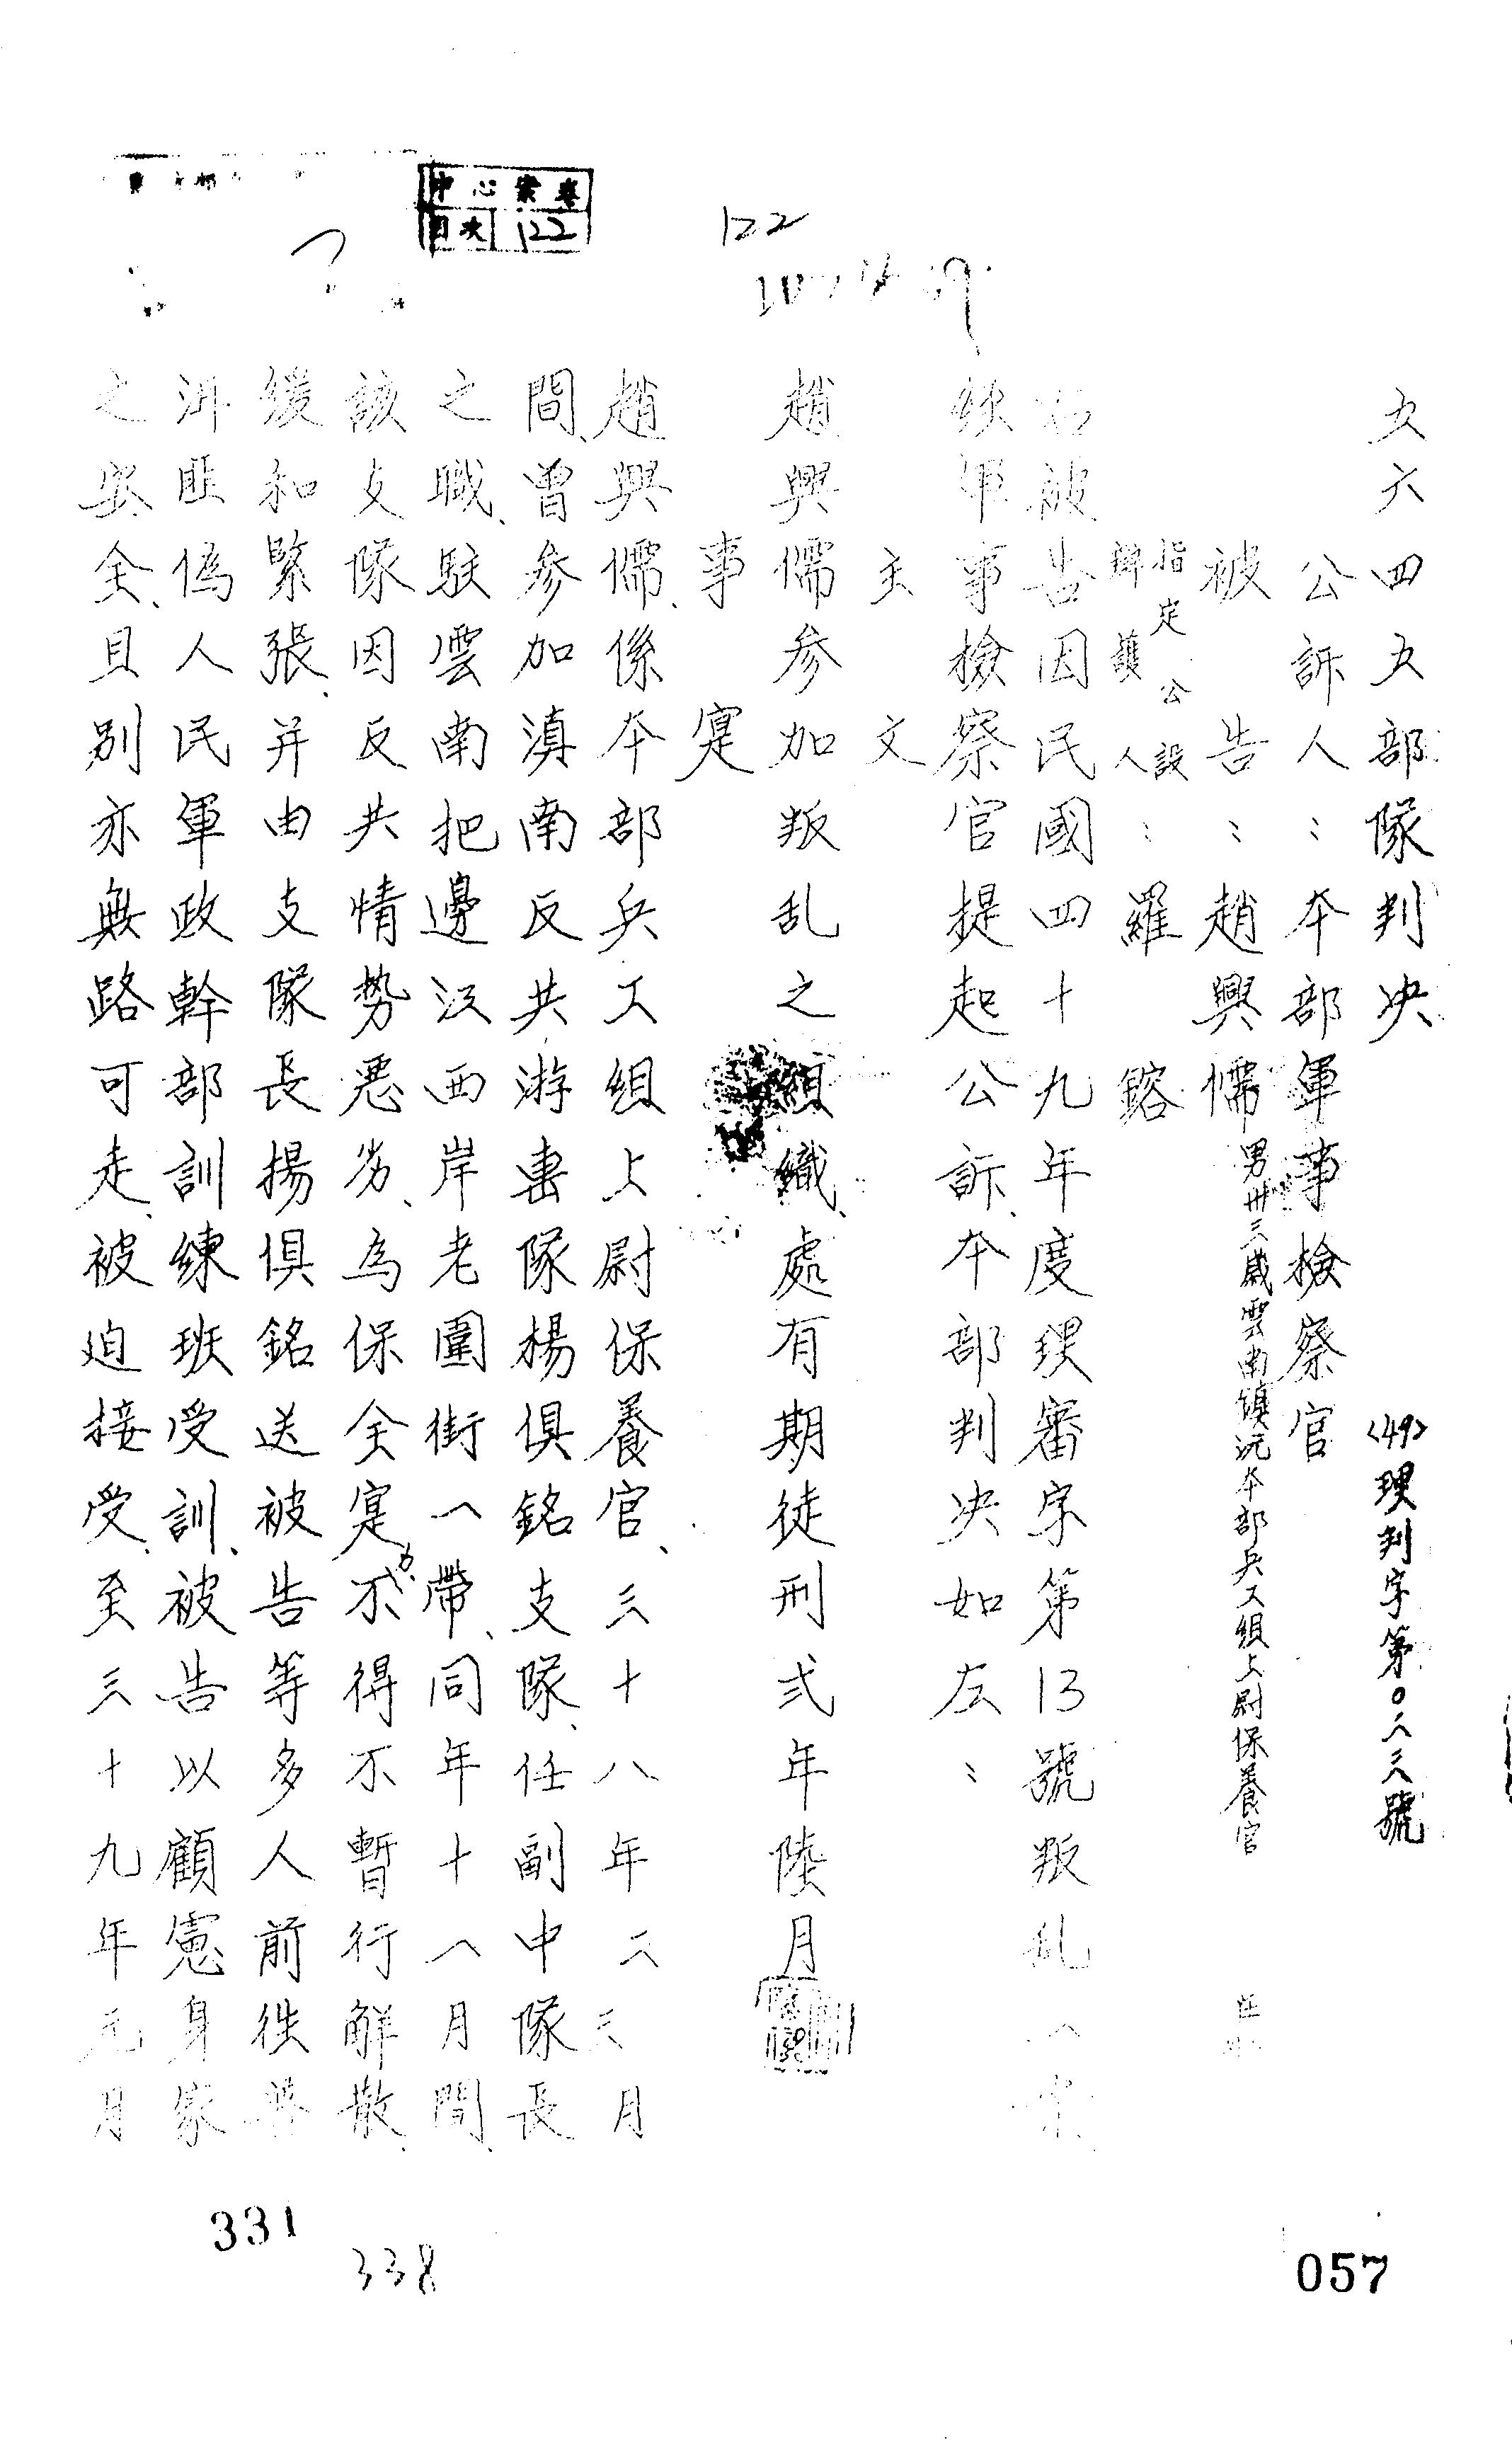 中心案卷
目次 122
122
五六四五部隊判決
<49>理判字第〇二三號
公訴人：本部軍事檢察官
被告：趙興儒 男卅三歲雲南鎮沅本部兵工組上尉保養官
指定公設
辯護人：羅 鎔
右被告因民國四十九年度理審字第13號叛乱一案
經軍事檢察官提起公訴、本部判決如左：
主文
趙興儒參加叛乱之組織、處有期徒刑弍年陸月
事實
趙興儒、係本部兵工組上尉保養官、三十八年二三月
間、曾參加滇南反共游擊隊楊俱銘支隊、任副中隊長
之職、駐雲南把邊江西岸老圍街一帶、同年十一月間、
該支隊因反共情势恶劣、為保全寔力、不得不暫行解散、
緩和緊張、并由支隊長揚俱銘送被告等多人前徃普
洱匪偽人民軍政幹部訓練班受訓、被告以顧慮身家
之安全、且別亦無路可走、被迫接受、至三十九年元月
331
338
057